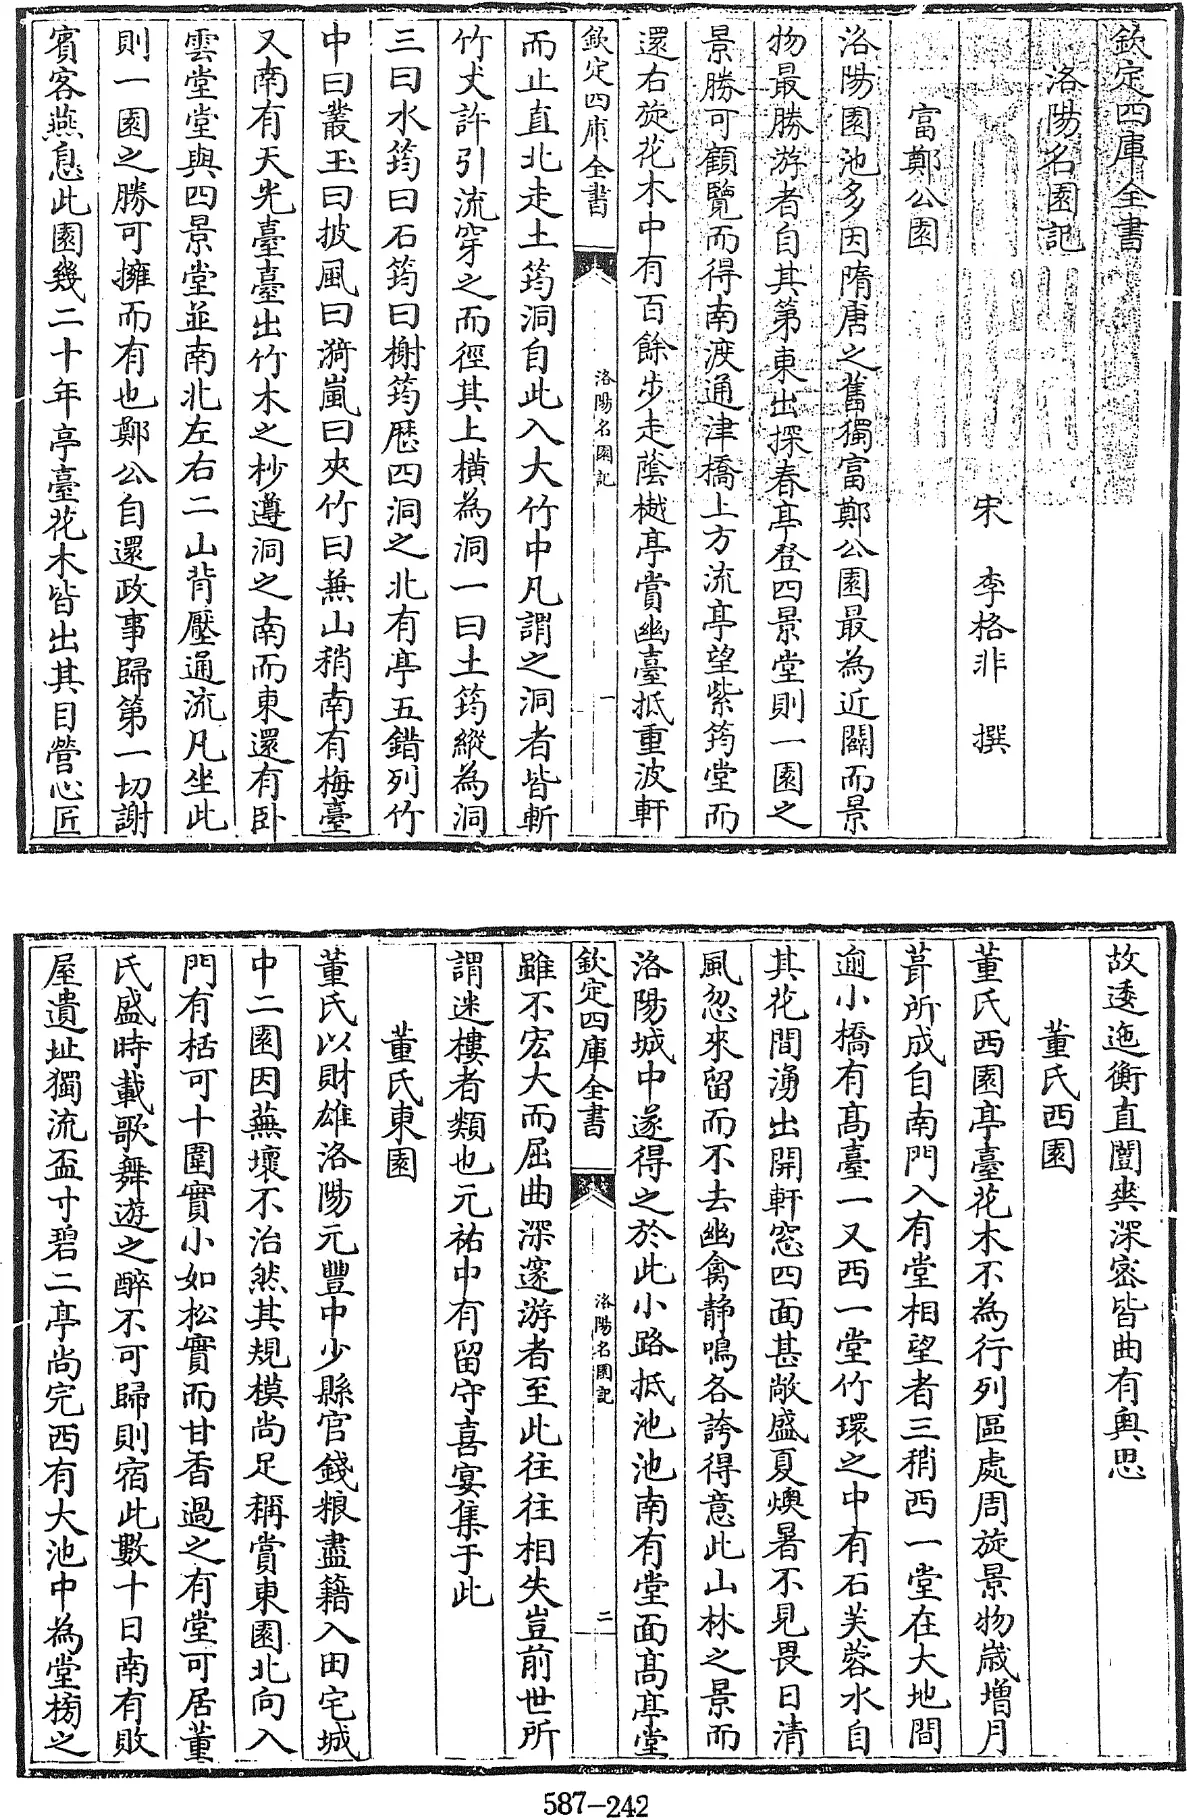 欽定四庫全書
洛陽名園記
宋 李格非 撰
富鄭公園
洛陽園池多因隋唐之舊獨富鄭公園最為近闢而景
物最勝游者自其第東出探春亭登四景堂則一園之
景勝可顧覽而得南渡通津橋上方流亭望紫筠堂而
還右旋花木中有百餘步走蔭樾亭賞幽臺抵重波軒
欽定四庫全書
洛陽名園記
一
而止直北走土筠洞自此入大竹中凡謂之洞者皆斬
竹丈許引流穿之而徑其上橫為洞一曰土筠縱為洞
三曰水筠曰石筠曰榭筠歴四洞之北有亭五錯列竹
中曰叢玉曰披風曰漪嵐曰夾竹曰蕪山稍南有梅臺
又南有天光臺臺出竹木之杪遵洞之南而東還有卧
雲堂堂與四景堂並南北左右二山背壓通流凡坐此
則一園之勝可擁而有也鄭公自還政事歸第一切謝
賓客燕息此園幾二十年亭臺花木皆出其目營心匠
故逶迤衡直闓爽深密皆曲有奧思
董氏西園
董氏西園亭臺花木不為行列區處周旋景物歲增月
葺所成自南門入有堂相望者三稍西一堂在大地間
逾小橋有髙臺一又西一堂竹環之中有石芙蓉水自
其花間湧出開軒窓四面甚敞盛夏燠暑不見畏日清
風忽來留而不去幽禽静鳴各誇得意此山林之景而
洛陽城中遂得之於此小路抵池池南有堂面髙亭堂
欽定四庫全書
洛陽名園記
二
雖不宏大而屈曲深邃游者至此往往相失豈前世所
謂迷樓者類也元祐中有留守喜宴集于此
董氏東園
董氏以財雄洛陽元豐中少縣官錢粮盡籍入田宅城
中二園因蕪壞不治然其規模尚足稱賞東園北向入
門有栝可十圍實小如松實而甘香過之有堂可居董
氏盛時載歌舞遊之醉不可歸則宿此數十日南有敗
屋遺址獨流盃寸碧二亭尚完西有大池中為堂榜之
587-242